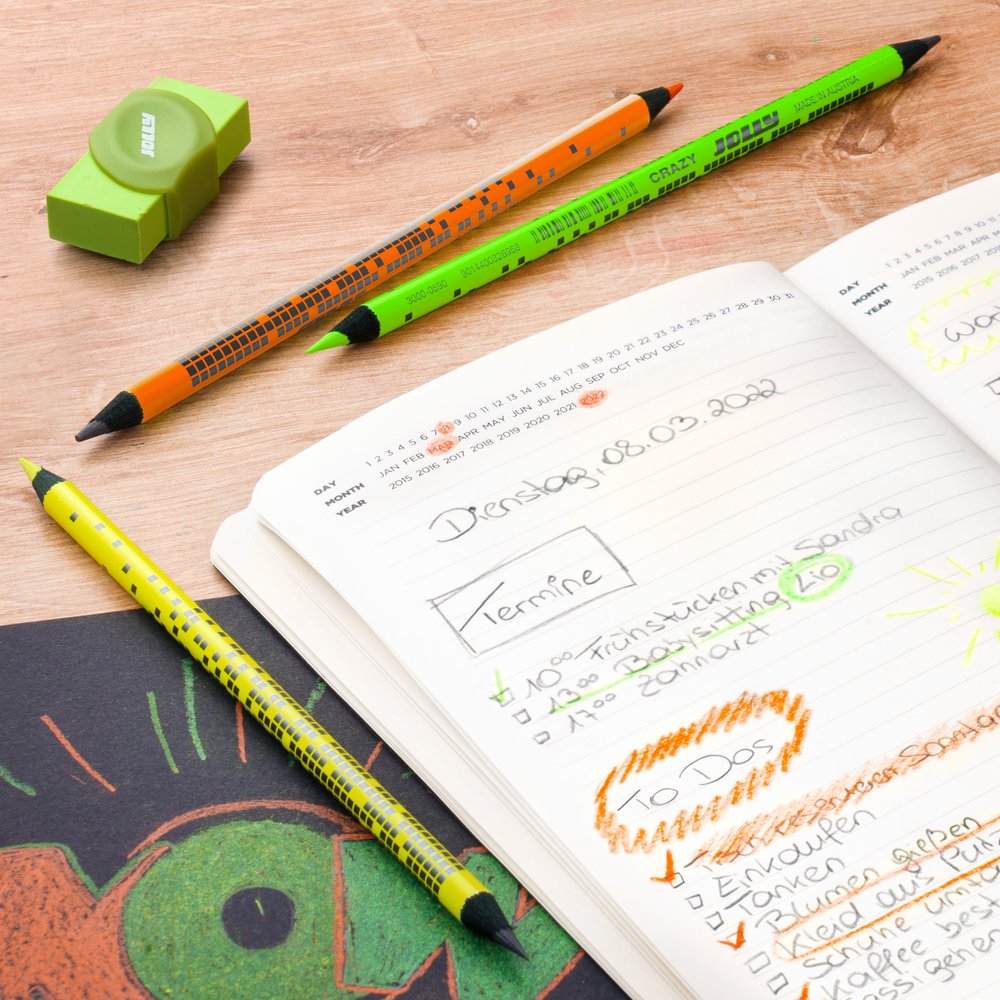 JOLLY
3000-0590 9014400328968 CRAZY JOLLY MADE IN AUSTRIA
DAY 1 2 3 4 5 6 7 8 9 10 11 12 13 14 15 16 17 18 19 20 21 22 23 24 25 26 27 28 29 30 31
MONTH JAN FEB MAR APR MAY JUN JUL AUG SEP OCT NOV DEC
YEAR 2015 2016 2017 2018 2019 2020 2021 2022
Dienstag, 08.03.2022
Termine
10⁰⁰ Frühstücken mit Sandra
13⁰⁰ Babysitting Lio
17⁰⁰ Zahnarzt
To Dos
Einkaufen
Tanken
Blumen gießen
Kleid aus Putz
Schuhe umta
Kaffee best
DAY 1 2 3 4 5 6 7 8 9 10
MONTH JAN FEB MAR APR
YEAR 2015 2016 2017